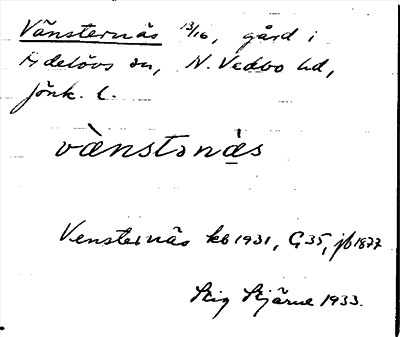 Vänsternäs 13/16, gård i
Adelövs sn, N. Vedbo hd,
Jönk. l.
vànstənä̀s
Vensternäs kb 1931, G 35, jb 1877
Stig Stjärne 1933.